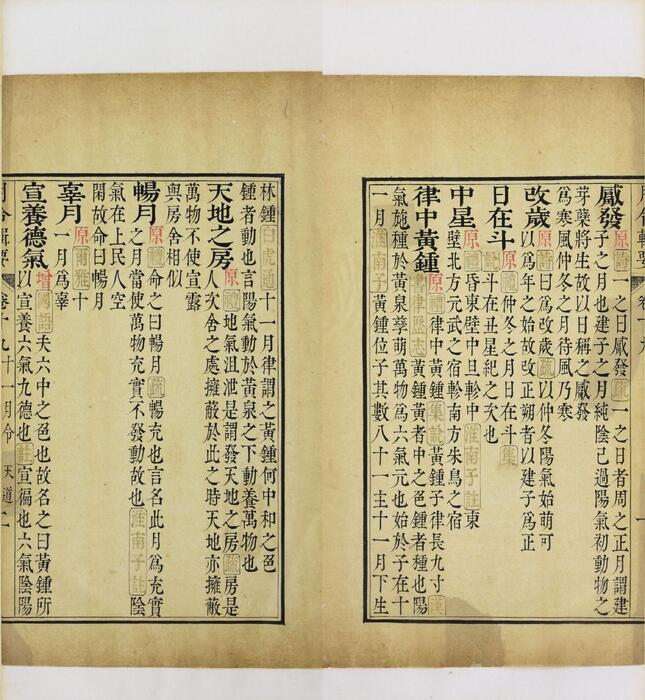 月令輯要 卷十九
觱發 原詩一之日觱發疏一之日者周之正月謂建
子之月也建子之月純陰已過陽氣初動物之
芽櫱將生故以日稱之觱發
為寒風仲冬之月待風乃寒
改歲 原詩曰為改歲疏以仲冬陽氣始萌可
以為年之始故改正朔者以建子為正
日在斗 原禮仲冬之月日在斗集
說斗在丑星紀之次也
中星 原禮昏東壁中旦軫中淮南子註東
壁北方元武之宿軫南方朱鳥之宿
律中黃鍾 原禮律中黃鍾集說黃鍾子律長九寸漢
書律歷志黃鍾黃者中之色鍾者種也陽
氣施種於黃泉孳萌萬物為六氣元也始於子在十
一月淮南子黃鍾位子其數八十一主十一月下生
林鍾白虎通十一月律謂之黃鍾何中和之色
鍾者動也言陽氣動於黃泉之下動養萬物也
天地之房 原禮地氣沮泄是謂發天地之房疏房是
人次舍之處擁蔽於此之時天地亦擁蔽
萬物不使宣露
與房舍相似
暢月 原禮命之曰暢月疏暢充也言名此月為充實
之月當使萬物充實不發動故也淮南子註陰
氣在上民人空
閑故命曰暢月
辜月 原爾雅十
一月為辜
宣養德氣 增國語夫六中之色也故名之曰黃鍾所
以宣養六氣九德也註宣徧也六氣陰陽
月令輯要 卷十九十一月令 天道 二